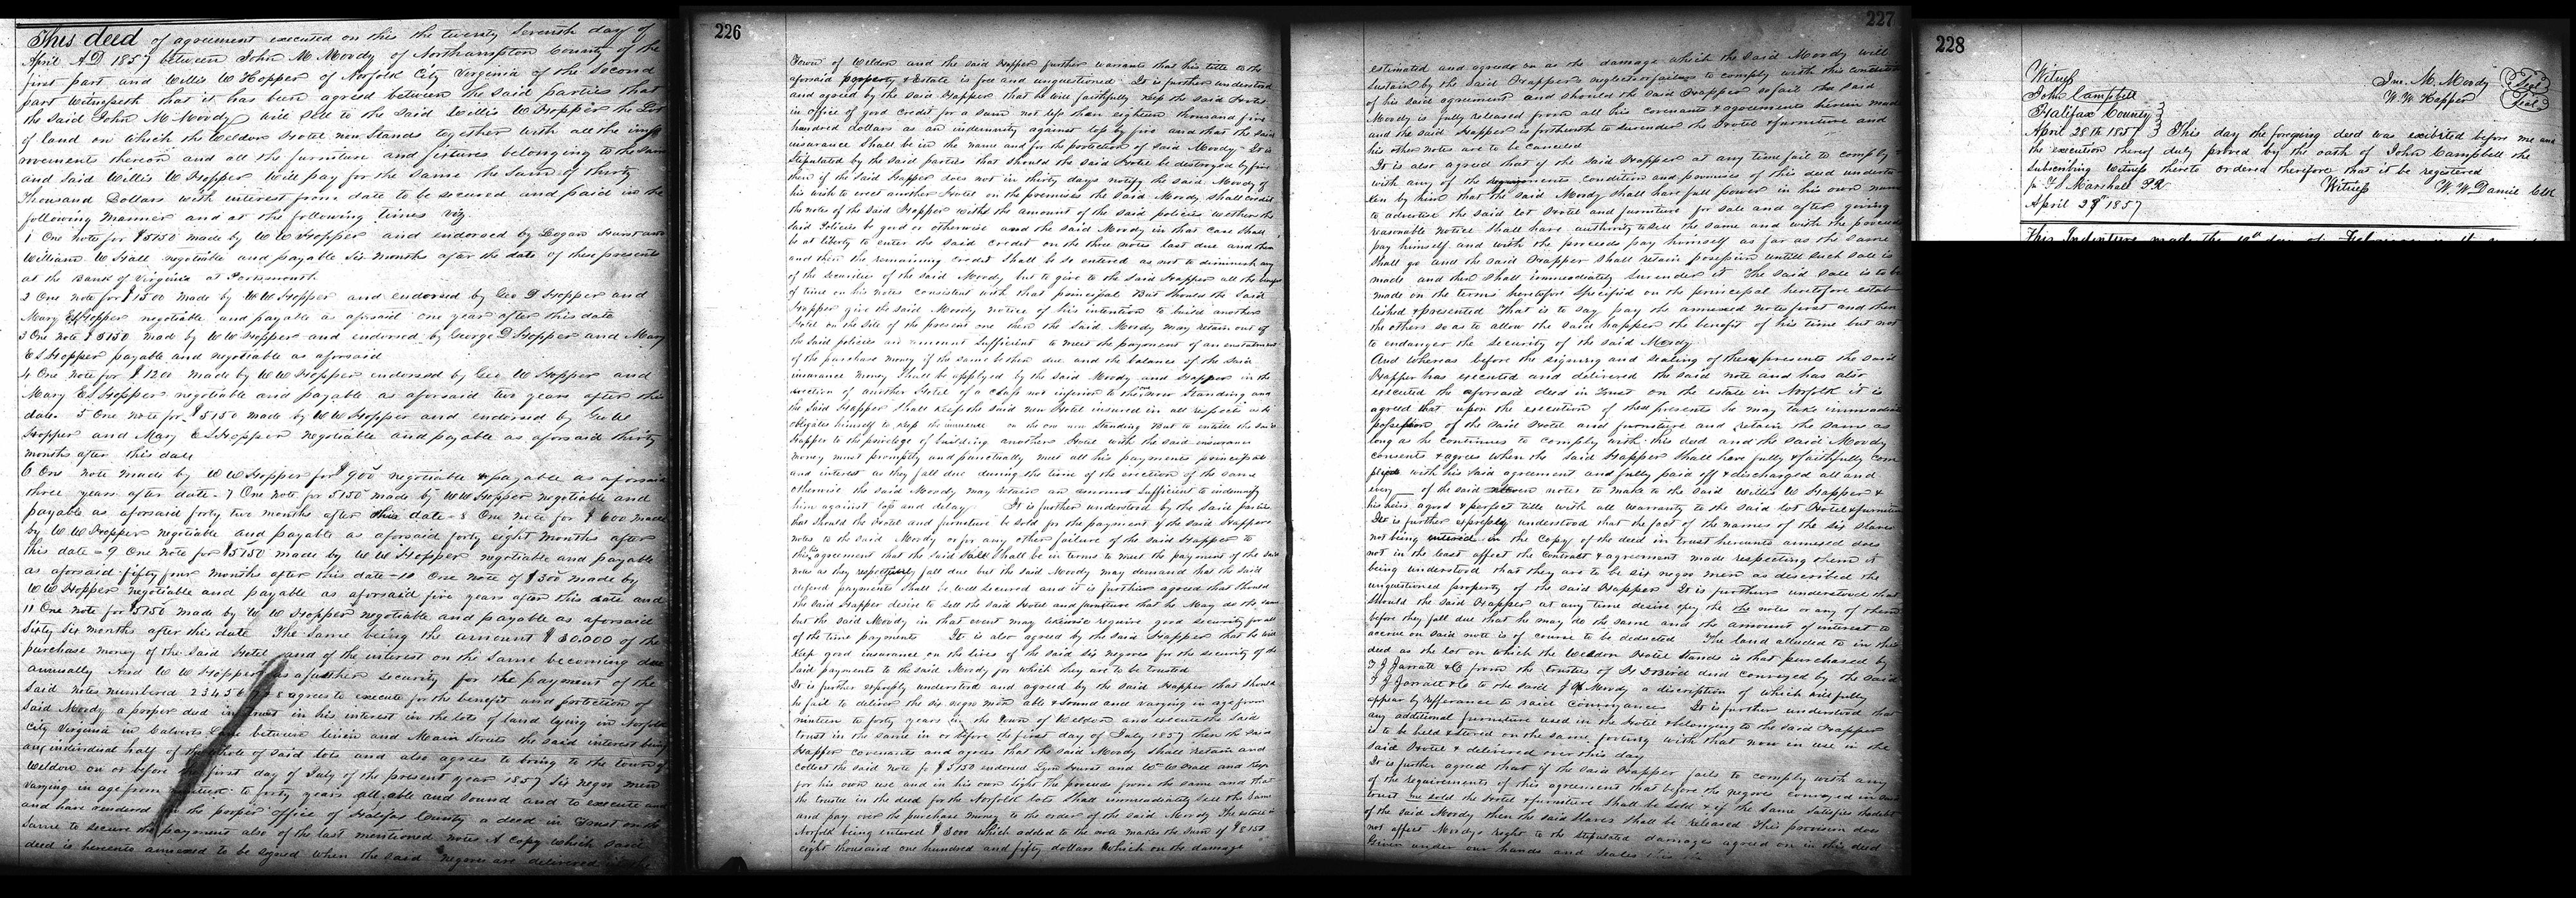 This deed of agreement executed on this the twenty Seventh day of
April A.D 1857 between John M Moody of Northampton County of the
first part and Willis W Hopper of Norfolk City Virginia of the Second
part Witnesseth that it has been agreed between the said parties that
the said John M Moody will sell to the said Willis W Hopper the Lot
of land on which the Weldon Hotel now Stands together with all the imp
rovements thereon and all the furniture and fixtures belonging to the same
and said Willis W Hopper will pay for the same the Sum of thirty
Thousand Dollars with interest from date to be secured and paid in the
following Manner and at the following times viz
1 One note for $5150 made by W W Hopper and endorsed by Logan Hurst and
William W Hall negotiable and payable Six months after the date of these presents
at the Bank of Virginia at Portsmouth
2 One note for $1500 made by W W Hopper and endorsed by Geo D Hopper and
Mary E S Hopper negotiable and payable as aforsaid one year after this date
3 One Note $5150 made by W W Hopper and endorsed by George D Hopper and Mary
E S Hopper payable and negotiable as aforsaid
4 One Note for $1200 made by W W Hopper endorsed by Geo W Hopper and
Mary E S Hopper negotiable and payable as aforsaid two years after this
date 5 One note for $5150 made by W W Hopper and endorsed by
Hopper and Mary E S Hopper negotiable and payable as aforsaid thirty
months after this date
6 One note made by W W Hopper for $900 negotiable & payable as aforsaid
three years after date - 7 One note for 5150 made by W W Hopper negotiable and
payable as aforsaid forty two months after this date - 8 One note for $600 made
by W W Hopper negotiable and payable as aforsaid forty eight months after
this date - 9 One note for $5150 made by W W Hopper negotiable and payable
as aforsaid fifty four months after this date - 10 One note of $300 made by
W W Hopper negotiable and payable as aforsaid five years after this date and
11 One note for $5150 made by W W Hopper negotiable and payable as aforsaid
Sixty Six months after this date The Same being the amount $30.000 of the
purchase money of the said Hotel and of the interest on the Same becoming due
annually And W W Hopper as a further security for the payment of the
said notes numbered 2 3 4 5 6 7 8 agrees to execute for the benefit and protection of
said Moody a proper deed in trust in his interest in the lots of land lying in Norfolk
City Virginia in Calverts Lane between and Main Streets the said interest being
an individual half of the whole of said lots and also agrees to bring to the town of
Weldon on or before the first day of July of the present year 1857 Six negro men
varying in age from nineteen to forty years all able and sound and to execute and
and have rendered in the proper office of Halifax County a deed in Trust on the
same to secure the payment also of the last mentioned notes A copy which said
deed is hereunto annexed to be signed when the said negroes are delivered
226
Town of Weldon and the said Hopper further warrants that his title to the
aforsaid property & Estate is free and unquestioned It is further understood
and agreed by the said Hopper that he will faithfully keep the said Hotel
in office of good credit for a sum not less than eighteen thousand five
hundred dollars as an indemnity against loss by fire and that the said
insurance shall be in the name and for the protection of said Moody - It is
stipulated by the said parties that should the said Hotel be destroyed by fire
then if the said Hopper does not in thirty days notify the said Moody of
his wish to erect another Hotel on the premises the said Moody shall credit
the notes of the said Hopper with the amount of the said policies wether the
said Policies be good or otherwise and the said Moody in that case shall
be at liberty to enter the said credit on the three notes last due and then
and then the remaining credit shall be so entered as not to diminish any
of the securities of the said Moody but to give to the said Hopper all the benefit
of time on his notes consistent with that principal But should the said
Hopper give the said Moody notice of his intention to build another
Hotel on the site of the present one then the said Moody may retain out of
the said policies an amount sufficient to meet the payment of an enstalment
of the purchase money if the same be then due and the balance of the said
insurance money shall be applyed by the said Moody and Hopper in the
erection of another Hotel of a class not inferior to the one now standing and
the said Hopper shall keep the said new Hotel insured in all respects as he
obligates himself to keep the insurence on the one now standing But to entitle the said
Hopper to the privilege of building another Hotel with the said insurance
money must promptly and punctually meet all his payments principal
and interest as they fall due during the time of the erection of the same
otherwise the said Moody may retain an amount sufficient to indemnify
him against loss and delay It is further understood by the said parties
that should the Hotel and furniture be sold for the payment of the said Hoppers
notes to the said Moody or for any other failure of the said Hopper to
this agreement that the said sale shall be in terms to meet the payment of the said
notes as they respectively fall due but the said Moody may demand that the said
deferred payments shall be well secured and it is further agreed that should
the said Hopper desire to sell the said Hotel and furniture that he may do the same
but the said Moody in that event may likewise require good security for all
of the time payments It is also agreed by the said Hopper that he will
keep good insurance on the lives of the said six negroes for the security of the
said payments to the said Moody for which they are to be trusted
It is further expressly understood and agreed by the said Hopper that should
he fail to deliver the six negro men able & sound and varying in age from
nineteen to forty years in the Town of Weldon and execute the said
trust in the same in or before the first day of July 1857 then the said
Hopper covenants and agrees that the said Moody shall retain and
collect the said note for $5150 endorsed Hurst and Wm W Hall and keep
for his own use and in his own right the proceeds from the same and that
the trustee in the deed for the Norfolk lots shall immediately sell the same
and pay over the purchase money to the order of the said Moody The estate in
Norfolk being entered $3000 which added to the note makes the sum of $8150
eight thousand one hundred and fifty dollars which on the damage
227
estimated and agreed on as the damage which the said Moody will
sustain by the said Hoppers neglect or failure to comply with this condition
of his said agreement and should the said Hopper so fail the said
Moody is fully released from all his covenants & agreements herein made
and the said Hopper is forthwith to surender the Hotel & furniture and
his other notes are to be canceled
It is also agreed that if the said Hopper at any time fail to comply
with any of the requirements Condition and promises of this deed underta
ken by him that the said Moody shall have full power in his own name
to advertise the said lot Hotel and furniture for sale and after giving
reasonable notice shall have authority to sell the same and with the proceeds
pay himself and with the proceeds pay himself as far as the same
shall go and the said Hopper shall retain possession untill such sale is
made and then shall immediately surender it The said sale is to be
made on the terms heretofore specified on the principal heretofore estab
lished & presented That is to say pay the annexed notes first and then
the others so as to allow the said hopper the benefit of his time but not
to endanger the security of the said Moody
And whereas before the signing and sealing of these presents the said
Hopper has executed and delivered the said note and has also
executed the aforsaid deed in Trust on the estate in Norfolk it is
agreed that upon the execution of these presents he may take immediate
possession of the said Hotel and furniture and retain the same as
long as he continues to comply with this deed and the said Moody
consents & agrees when the said Hopper shall have fully & faithfully com
plied with his said agreement and fully paid off & discharged all and
every of the said eleven notes to make to the said Willis W Hopper &
his heirs a good & perfect title with all warranty to the said lot Hotel & furniture
It is further expressly understood that the fact of the names of the six slaves
not being entered in the copy of the deed in trust hereunto annexed does
not in the least affect the contract & agreement made respecting them it
being understood that they are to be six negro men as described the
unquestioned property of the said Hopper It is further understood that
should the said Hopper at any time desire opey the the notes or any of them
before they fall due that he may do the same and the amount of interest to
accrue on said note is of course to be deducted The land alluded to in this
deed as the lot on which the Weldon Hotel stands is that purchased by
T J Jarratt & Co from the trustees of H D Bird deed conveyed by the said
T J Jarratt & Co to the said J M Moody a discription of which will fully
appear by refferance to said conveyances It is further understood that
any additional furniture used in the Hotel & belonging to the said Hopper
is to be held & stered on the same footing with that now in use in the
said Hotel & delivered over this day
It is further agreed that if the said Hopper fails to comply with any
of the requirements of this agreement that before the negroes conveyed in said
trust are sold the Hotel & furniture shall be sold & if the same satisfies the debt
of the said Moody then the said slaves shall be released This provision does
not affect Moodys right to the stipulated damages agreed on in this deed
Given under our hands and seales this
228
Witness
John Campbell
Jno. M. Moody (Seal)
W. W. Hopper (Seal)
Halifax County
April 28th 1857 This day the foregoing deed was exibited before me and
the execution thereof duly proved by the oath of John Campbell the
subscribing witness thereto ordered therefore that it be registered
pr F S Marshall P R Witness W. W. Daniel Clk
April 28th 1857
This Indenture made the 10th day of February